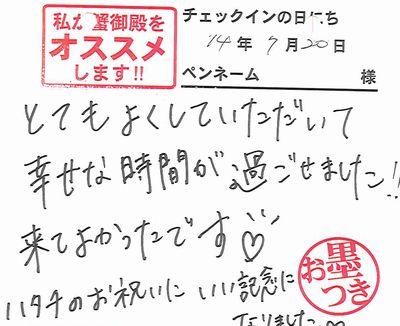 私が璽御殿を
オススメ
します!!
チェックインの日にち
14年 9月20日
ペンネーム 様
とてもよくしていただいて
幸せな時間が過ごせました!!
来てよかったです♡
ハタチのお祝いに いい記念に
なりました
お墨つき